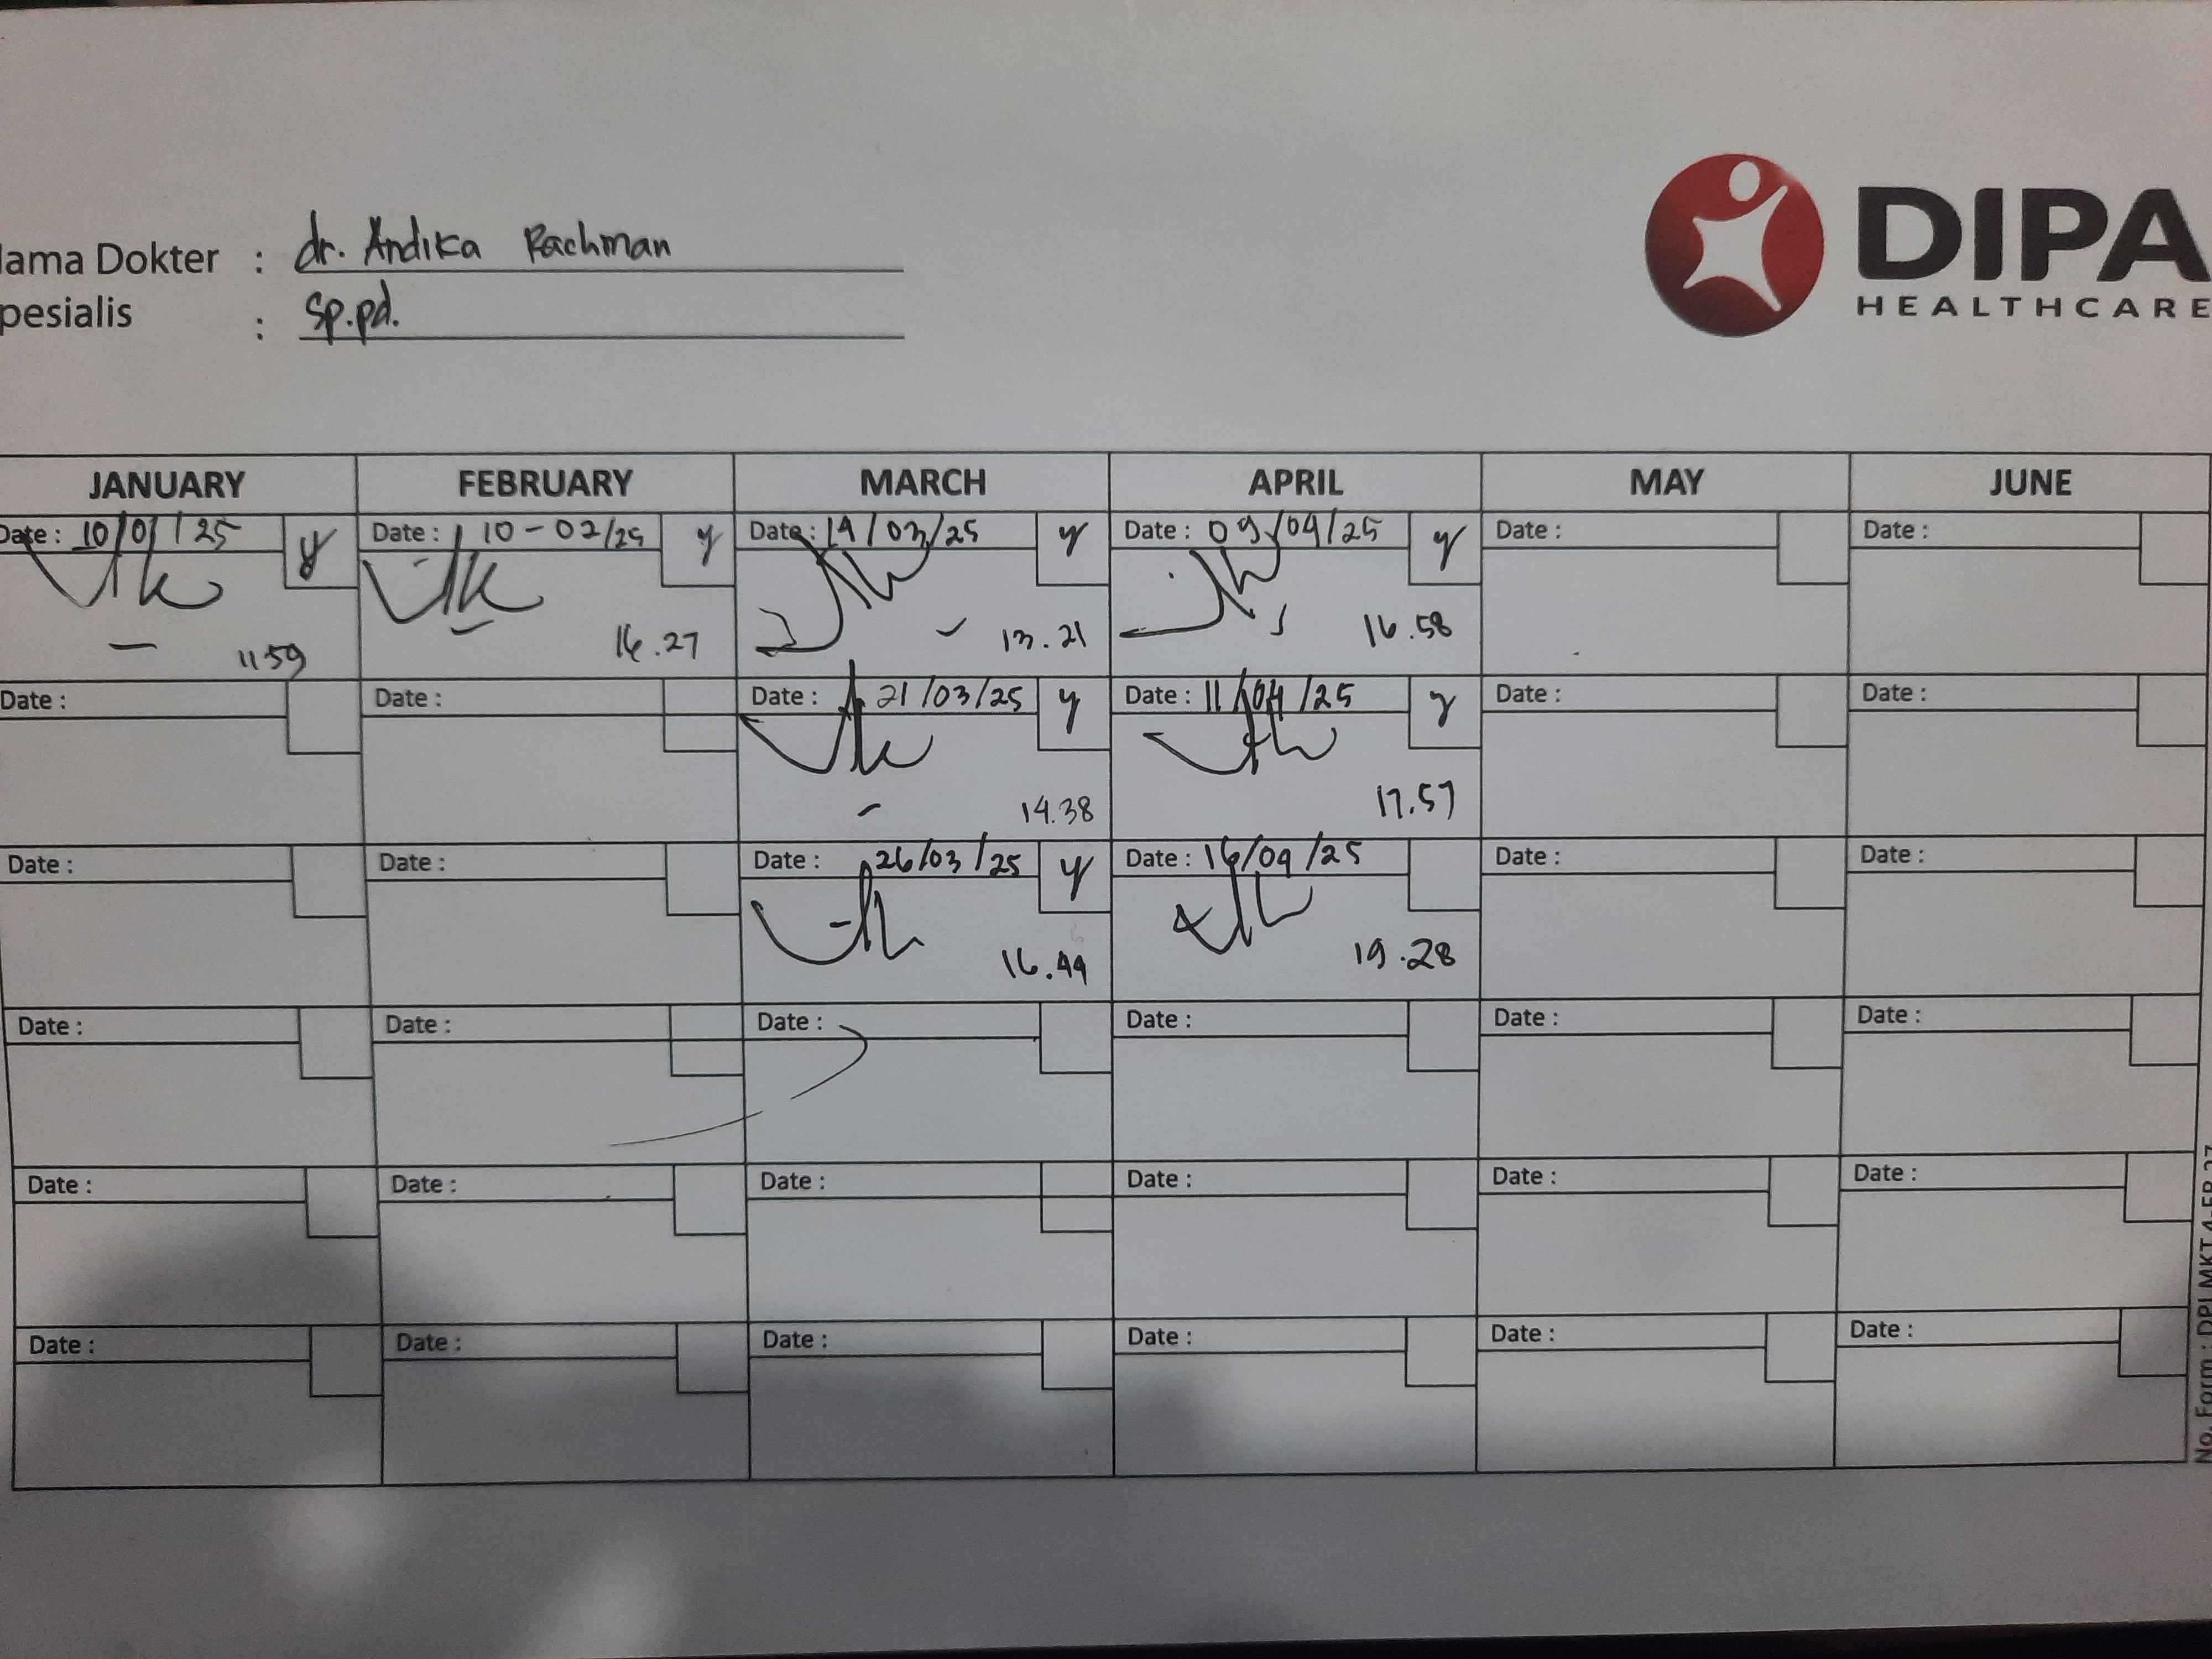 DIPA
HEALTHCARE
Nama Dokter : dr. Andika Rachman
Spesialis : Sp.pd.
JANUARY FEBRUARY MARCH APRIL MAY JUNE
Date : 10/01/25 y Date : 10-02/25 y Date : 14/03/25 y Date : 09/04/25 y Date : Date :
11 59 16.27 13.21 16.58
Date : Date : Date : 21/03/25 y Date : 11/04/25 y Date : Date :
14.38 17.57
Date : Date : Date : 26/03/25 y Date : 16/04/25 Date : Date :
16.44 19.28
Date : Date : Date : Date : Date : Date :
Date : Date : Date : Date : Date : Date :
Date : Date : Date : Date : Date : Date :
No. Form : DPI.MKT.4-FR.27